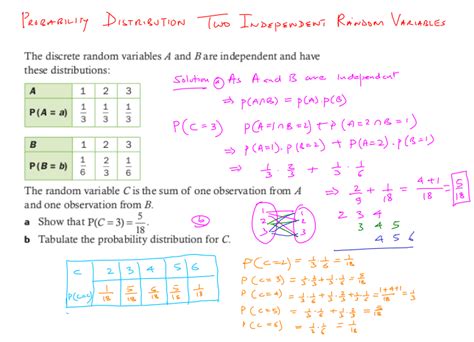 PROBABILITY DISTRIBUTION TWO INDEPENDENT RANDOM VARIABLES
The discrete random variables A and B are independent and have
these distributions:
A 1 2 3
P(A = a) 1/3 1/3 1/3
B 1 2 3
P(B = b) 1/6 2/3 1/6
The random variable C is the sum of one observation from A
and one observation from B.
a Show that P(C = 3) = 5/18.
b Tabulate the probability distribution for C.
C 2 3 4 5 6
P(C=c) 1/18 5/18 6/18 5/18 1/18
Solution a As A and B are independent
⇒ P(A∩B) = P(A).P(B)
P(C=3) P(A=1∩B=2) + P(A=2∩B=1)
⇒ P(A=1).P(B=2) + P(A=2).P(B=1)
⇒ 1/3 . 2/3 + 1/3 . 1/6
⇒ 2/9 + 1/18 = 4+1/18 = 5/18
b
1 1
2 2
3 3
2 3 4
3 4 5
4 5 6
P(C=2) = 1/3 . 1/6 = 1/18
P(C=3) = 1/3 . 2/3 + 1/3 . 1/6 = 5/18
P(C=4) = 1/3 . 1/6 + 1/3 . 2/3 + 1/3 . 1/6 = 1+4+1/18 = 1/3
P(C=5) = 1/3 . 1/6 + 1/3 . 2/3 = 5/18
P(C=6) = 1/3 . 1/6 = 1/18